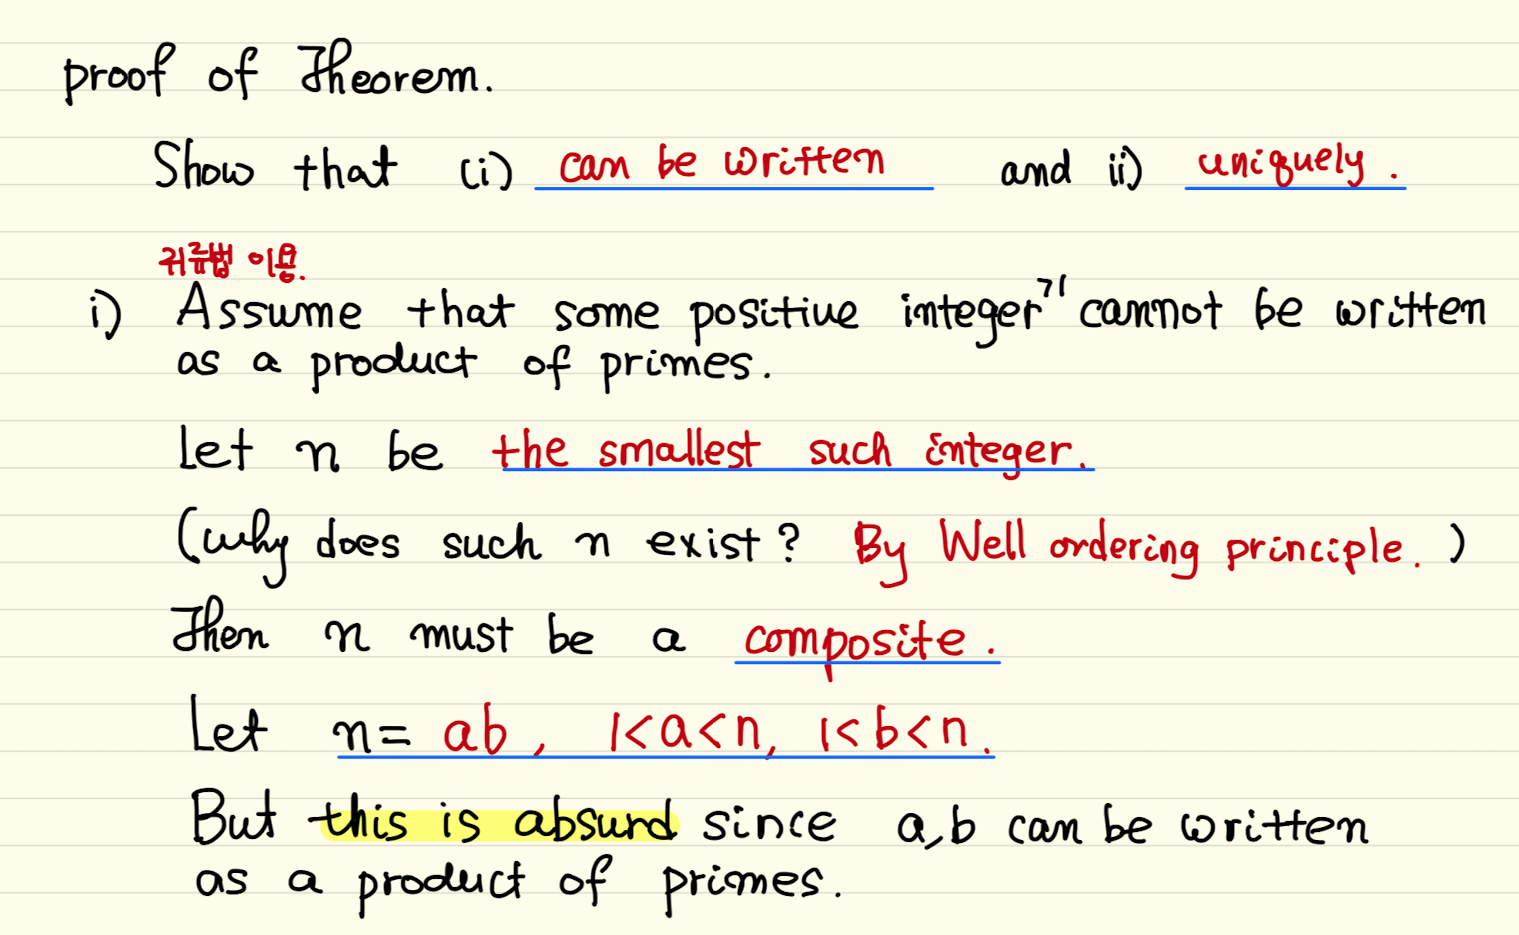 proof of Theorem.
Show that (i) can be written and ii) uniquely.
귀류법 이용.
i) Assume that some positive integer가 cannot be written
as a product of primes.
Let n be the smallest such integer.
(why does such n exist? By Well ordering principle. )
Then n must be a composite.
Let n= ab, 1<a<n, 1<b<n.
But this is absurd since a,b can be written
as a product of primes.